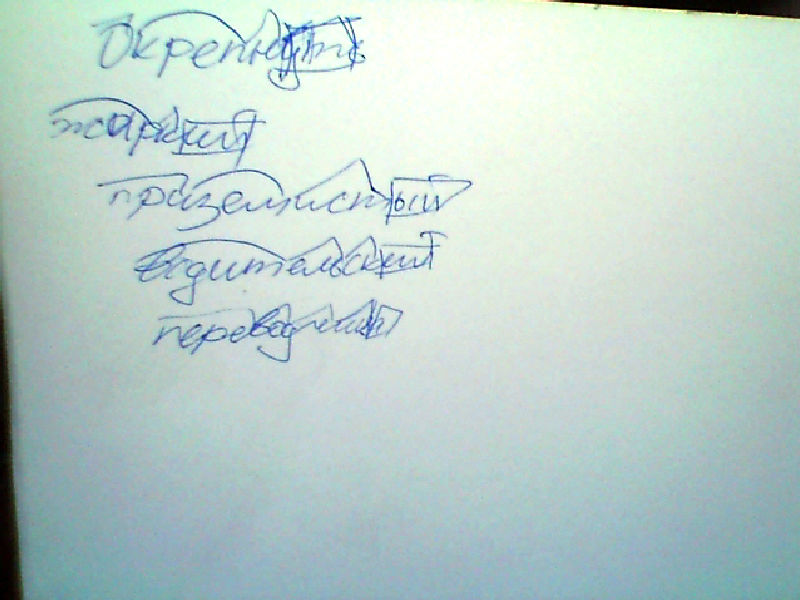 Окрепнуть
жаркий
приземистый
водительский
переводчик